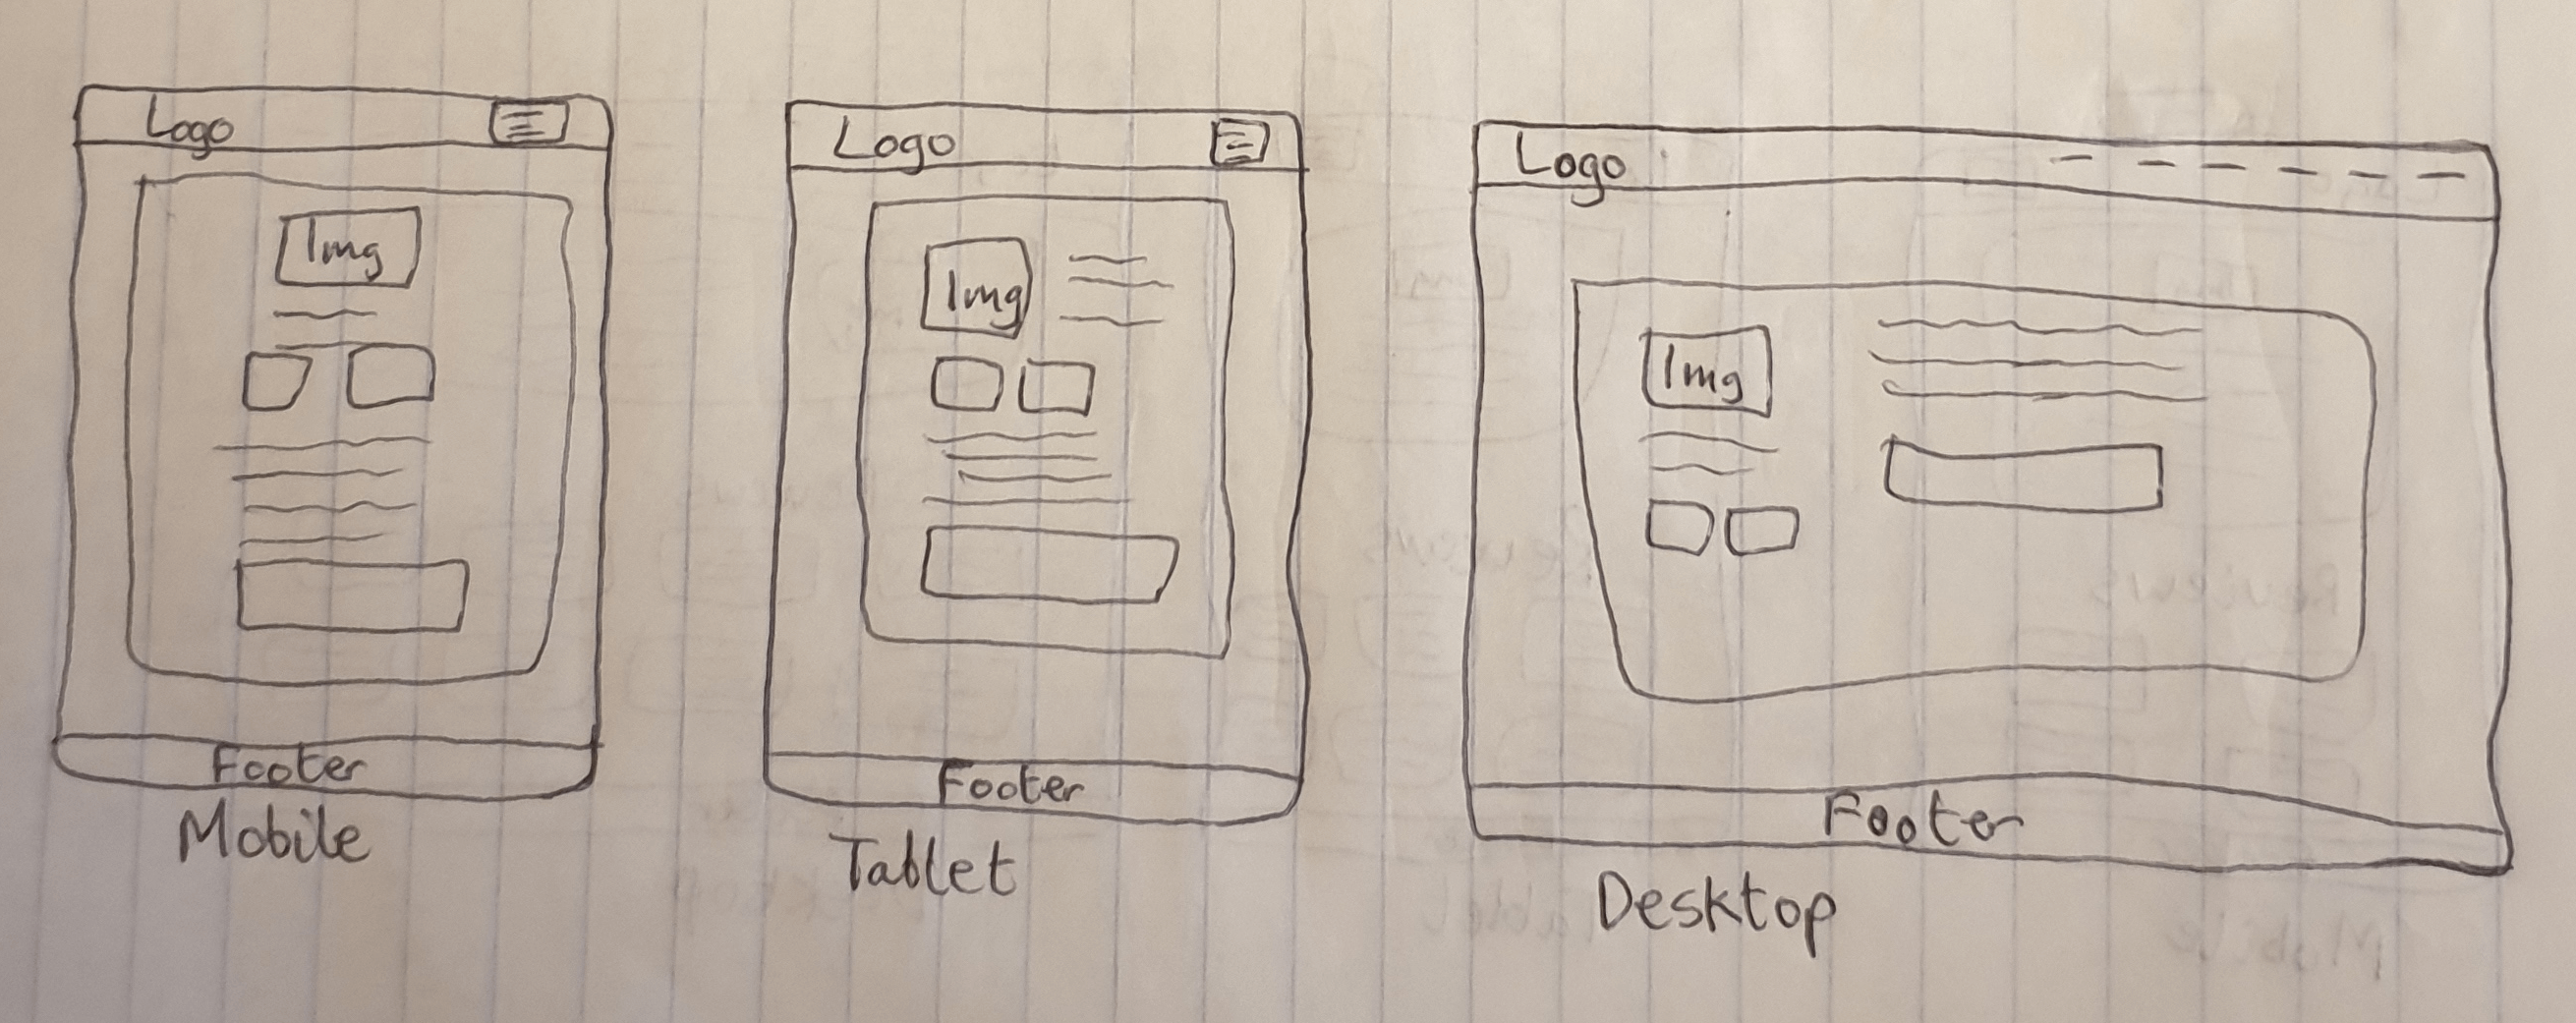 Logo
Img
Footer
Mobile
Logo
Img
Footer
Tablet
Logo
Img
Footer
Desktop